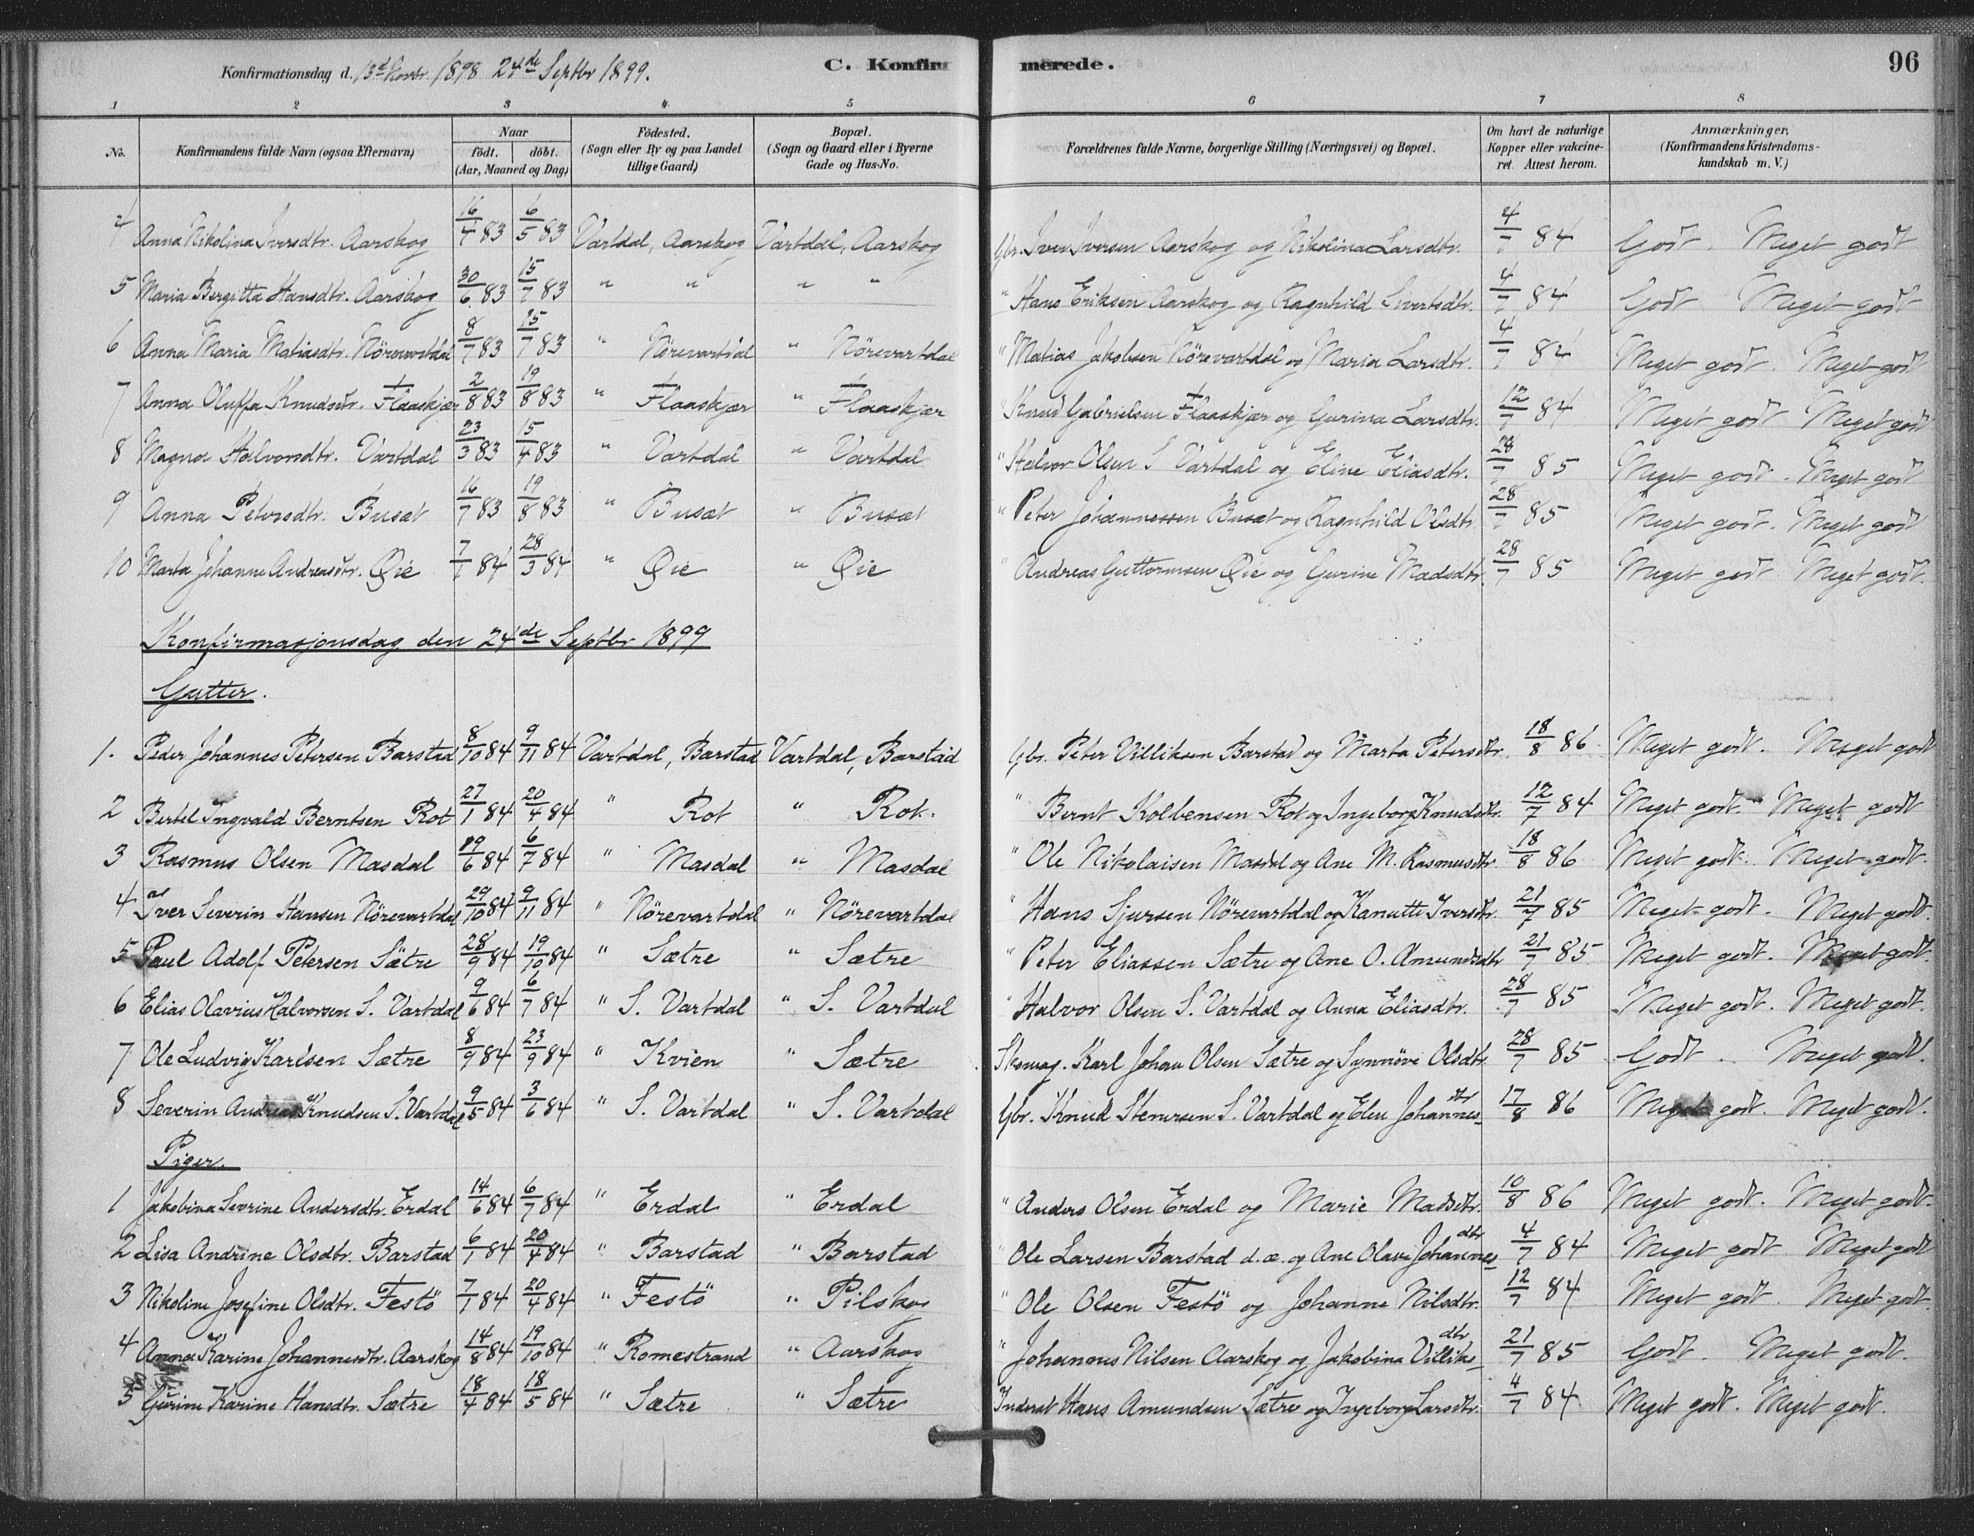 Konfirmationsdag d. 13de Novbr. 1898 24de Septbr 1899. C. Konfirmerede. 96
1 2 3 4 5 6 7 8
No. Konfirmandens fulde Navn (ogsaa Efternavn) Naar födt. döbt. (Aar, Maaned og Dag) Födested. (Sogn eller By og paa Landet tillige Gaard) Bopæl. (Sogn og Gaard eller i Byerne Gade og Hus-No. Forældrenes fulde Navne, borgerlige Stilling (Næringsvei) og Bopæl. Om havt de naturlige Kopper eller vakcineret. Attest herom. Anmærkninger, (Konfirmandens Kristendomskundskab m. V.)
4 Anna Nikolina Iversdtr. Aarskog 16/4 83 6/5 83 Vartdal, Aarskog Vartdal, Aarskog Gbr. Iver Iversen Aarskog og Nikolina Larsdtr. 4/7 84 Godt. Meget godt
5 Maria Bergitta Hansdtr. Aarskog 30/6 83 15/7 83 " " " " " Hans Eriksen Aarskog og Ragnhild Sivertsdtr. 4/7 84 Godt Meget godt
6 Anna Maria Matiasdtr. Nörevartdal 8/7 83 15/7 83 " Nörevartdal " Nörevartdal " Matias Jakobsen Nörevartdal og Maria Larsdtr. 4/7 84 Meget godt. Meget godt
7 Anna Oluffa Knudsdtr. Flaaskjær 2/8 83 19/8 83 " Flaaskjær " Flaaskjær " Knud Gabrielsen Flaaskjær og Gurina Larsdtr. 12/7 84 Meget godt Meget godt
8 Magna Halvorsdtr. Vartdal 23/3 83 15/4 83 " Vartdal " Vartdal " Halvor Olsen S. Vartdal og Eline Eliasdtr. 28/7 85 Meget godt. Meget godt
9 Anna Petersdtr. Busæt 16/7 83 19/8 83 " Busæt " Busæt " Peter Johannessen Busæt og Ragnhild Olsdtr. 28/7 85 Meget godt. Meget godt
10 Marta Johanne Andreasdtr. Øie 7/1 84 28/3 84 " Øie " Øie " Andreas Guttormsen Øie og Gurine Madsdtr. 28/7 85 Meget godt Meget godt.
Konfirmasjonsdag den 24de Septbr 1899
Gutter.
1. Peder Johannes Petersen Barstad 8/10 84 9/11 84 Vartdal, Barstad Vartdal, Barstad Gbr. Peter Villiksen Barstad og Marta Petersdtr. 18/8 86 Meget godt. Meget godt
2 Bertel Ingvald Berntsen Rot 27/1 84 20/4 84 " Rot " Rot. " Bernt Kolbensen Rot og Ingeborg Knudsdtr. 12/7 84 Meget godt. Meget godt
3 Rasmus Olsen Masdal 19/6 84 6/7 84 " Masdal " Masdal " Ole Nikolaisen Masdal og Ane M. Rasmusdtr 18/8 86 Meget godt. Meget godt.
4 Iver Severin Hansen Nörevartdal 29/10 84 9/11 84 " Nörevartdal " Nörevartdal " Hans Sjursen Nörevartdal og Kanutte Iversdtr. 21/7 85 Meget godt. Meget godt.
5 Paul Adolf Petersen Sætre 28/9 84 19/10 84 " Sætre " Sætre " Peter Eliassen Sætre og Ane O. Amundsdtr 21/7 85 Meget godt. Meget godt.
6 Elias Olavius Halvorsen S. Vartdal 9/6 84 6/7 84 " S. Vartdal " S. Vartdal " Halvor Olsen S. Vartdal og Anna Eliasdtr. 28/7 85 Meget godt. Meget godt.
7 Ole Ludvig Karlsen Sætre 8/9 84 23/9 84 " Kvien " Sætre Skomag. Karl Johan Olsen Sætre og Synnöve Olsdtr. 28/7 85 Godt. Meget godt.
8 Severin Andreas Knudsen S. Vartdal 9/5 84 3/6 84 " S. Vartdal " S. Vartdal Gbr. Knud Stenersen S. Vartdal og Elen Johannesdtr 17/8 86 Meget godt. Meget godt.
Piger.
1 Jakobina Sevrine Andersdtr. Erdal 14/6 84 6/7 84 " Erdal " Erdal " Anders Olsen Erdal og Marie Madsdtr. 10/8 86 Meget godt. Meget godt.
2 Lisa Andrine Olsdtr. Barstad 6/1 84 20/4 84 " Barstad " Barstad " Ole Larsen Barstad d. æ. og Ane Olave Johannesdtr 4/7 84 Meget godt Meget godt
3 Nikoline Josefine Olsdtr. Festö 7/1 84 20/4 84 " Festö " Pilskog " Ole Olsen Festö og Johanne Nilsdtr. 12/7 84 Meget godt. Meget godt.
4 Anna Karine Johannesdtr. Aarskog 14/8 84 19/10 84 " Romestrand " Aarskog " Johannes Nilsen Aarskog og Jakobina Villiksdtr 21/7 85 Godt. Meget godt.
5 Gurine Karine Hansdtr. Sætre 18/4 84 18/5 84 " Sætre " Sætre Inderst Hans Amundsen Sætre og Ingeborg Larsdtr. 4/7 84 Meget godt. Meget godt.